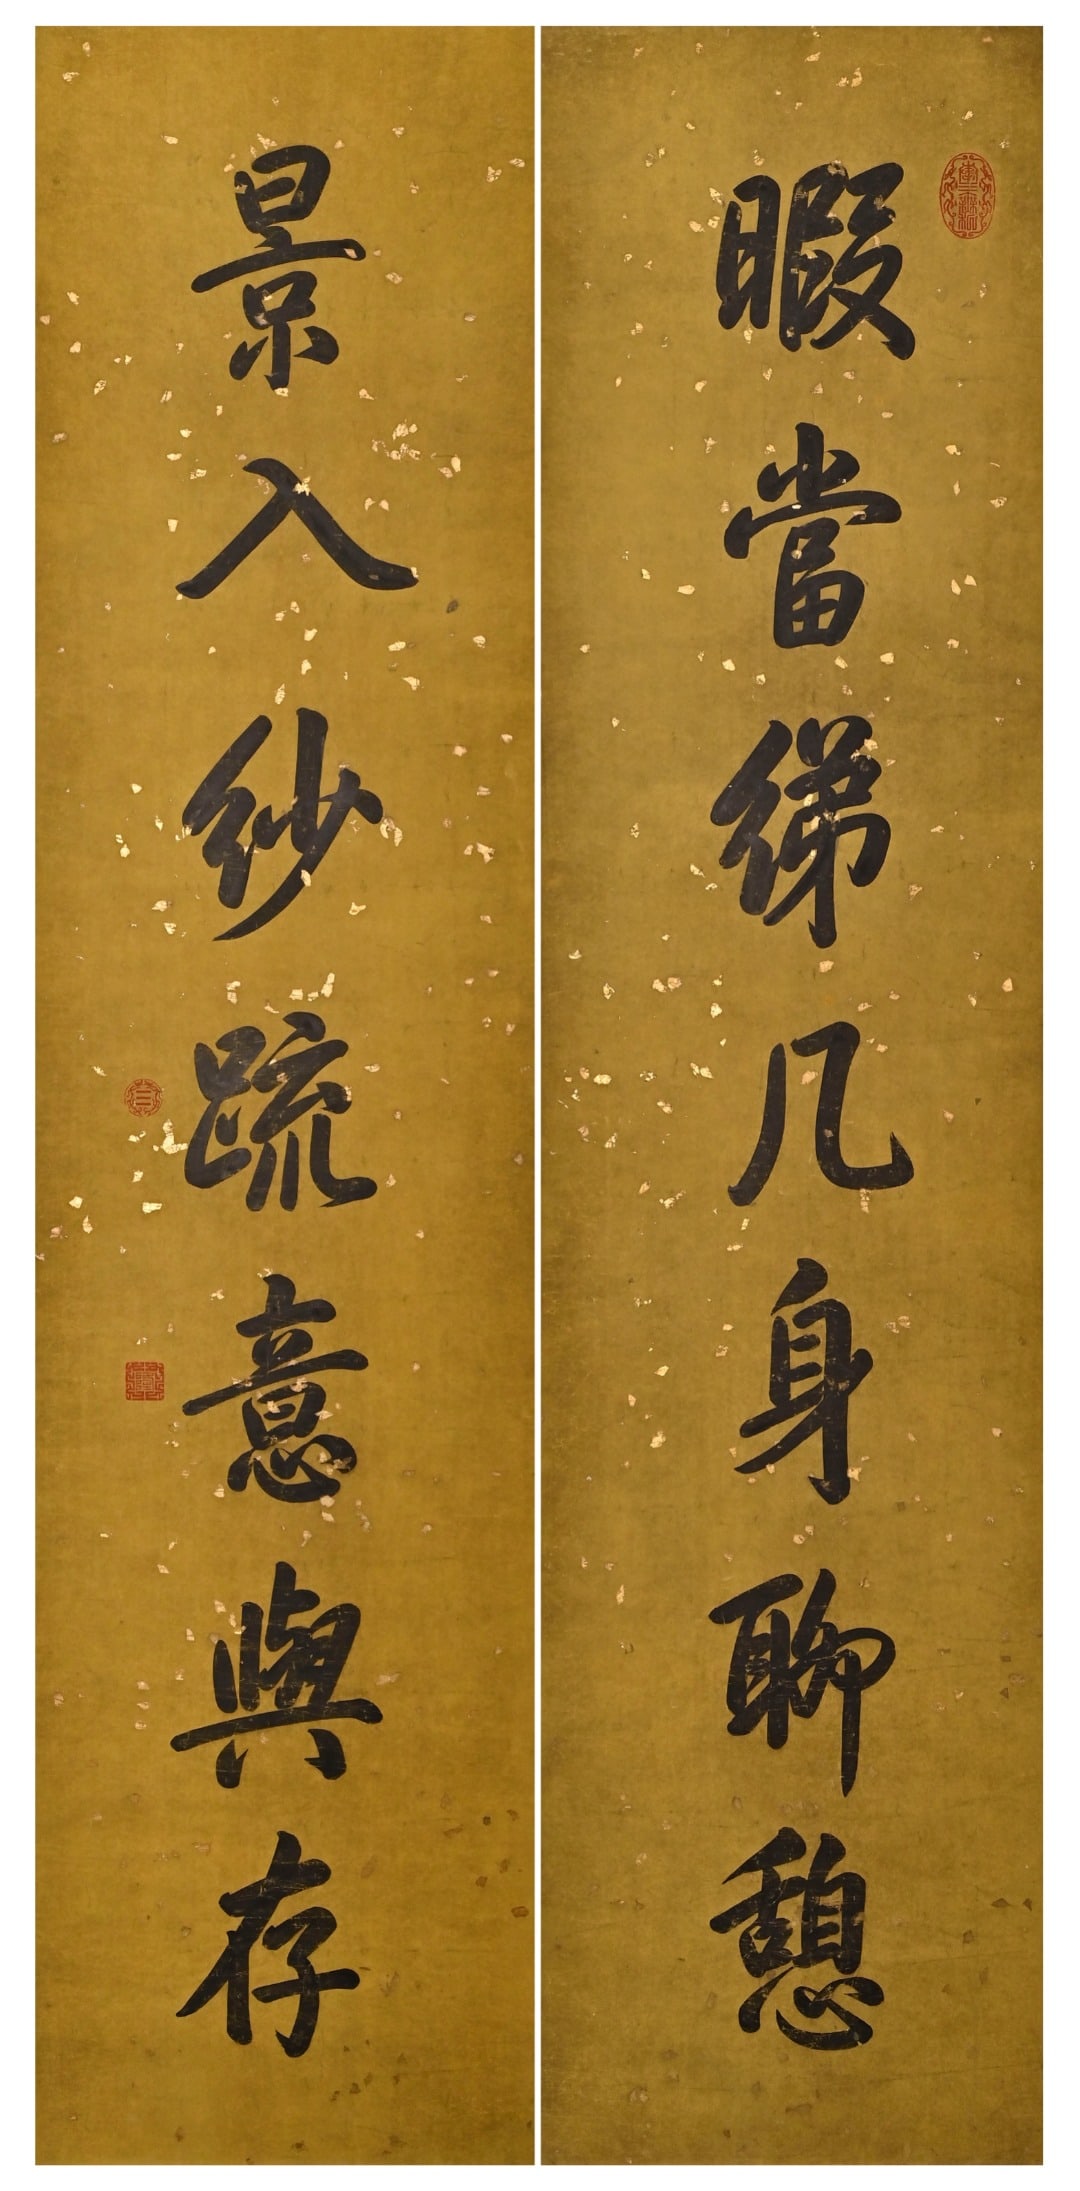 暇當綈几身聊憩
景入紗疏意與存